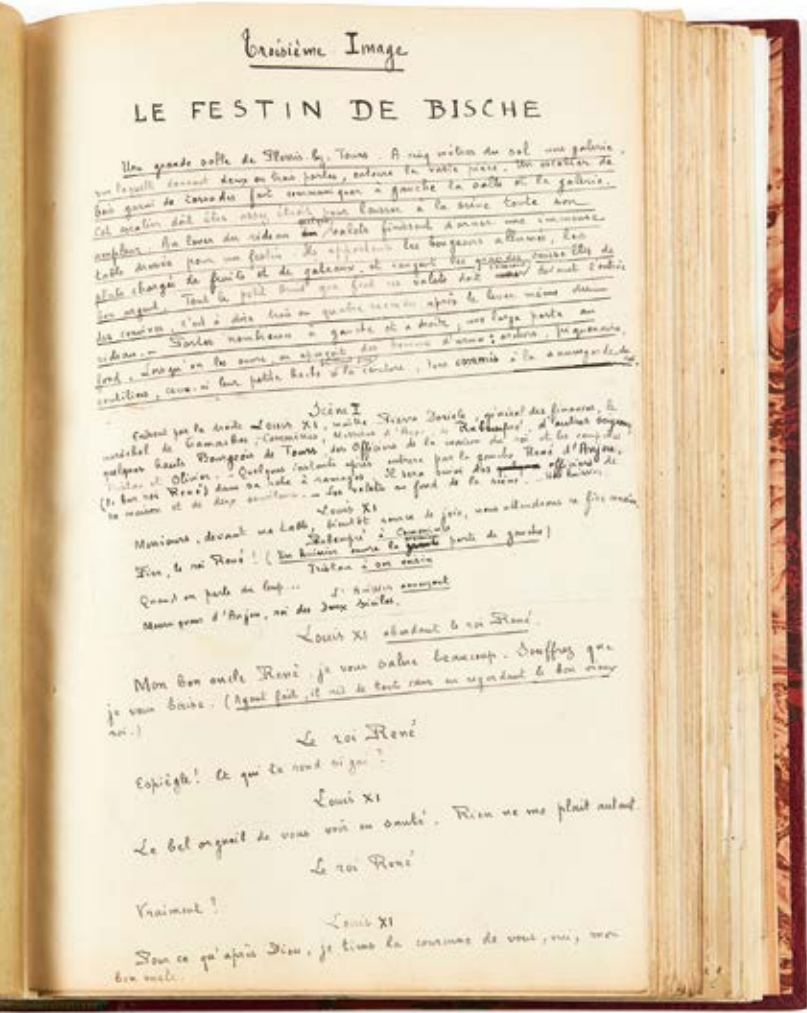 Troisième Image
LE FESTIN DE BISCHE
Une grande salle de Plessis-lez-Tours. A cinq mètres du sol une galerie,
sur laquelle donnent deux ou trois portes, entoure la vaste pièce. Un escalier de
bois garni de torsades fait communiquer à gauche la salle et la gallerie.
Cet escalier doit être assez étroit pour laisser à la scène toute son
ampleur. Au lever du rideau valets finissent d'orner une immense
table dressée pour un festin. Ils apportent les bougeoirs allumés, les
plats chargés de fruits et de gateaux, et rangent les grandes vaisselles de
bon argent. Tout le petit que font ces valets doit devant l'entrée
des convives, c'est à dire trois ou quatre secondes après le lever même du
rideau. Portes nombreuses à gauche et à droite, une large porte au
fond. Lorsqu'on les ouvre, on aperçoit des hommes d'armes: archers, piquenaires,
coutiliers, ceux-ci leur petite hache à la ceinture, tous commis à la sauvegarde du
Scène I
Entrent par la droite Louis XI, maître Pierre Doriole, général des finances, le
maréchal de Gamaches, Commines, Messieurs d' de Rubempré, d'autres seigneurs,
quelques hauts Bourgeois de Tours, des Officiers de la maison du roi et les compères
Tristan et Olivier. - Quelques instants après entrera par la gauche René d'Anjou,
(le bon roi René) dans sa robe à ramages. Il sera suivi des officiers de
sa maison et de deux - Les valets au fond de la scène. - Un huissier
Louis XI
Messieurs, devant ma table, bientôt source de joie, nous attendrons ce fier
Rubempré à Commines
Dieu, le roi René! (Un huissier ouvre la porte de gauche)
Tristan à son voisin
Quand on parle du loup...
L'huissier annonçant
Messire d'Anjou, roi des Deux Siciles.
Louis XI abordant le roi René.
Mon bon oncle René, je vous salue beaucoup. Souffrez que
je vous baise. (Ayant fait, il rit de tout cœur en regardant le bon vieux
roi.)
Le roi René
Espiègle! Ce qui te rend si gai?
Louis XI
Le bel orgueil de vous voir en santé. Rien ne me plait autant.
Le roi René
Vraiment?
Louis XI
Pour ce qu'après Dieu, je tiens la couronne de vous, oui, mon
bon oncle.